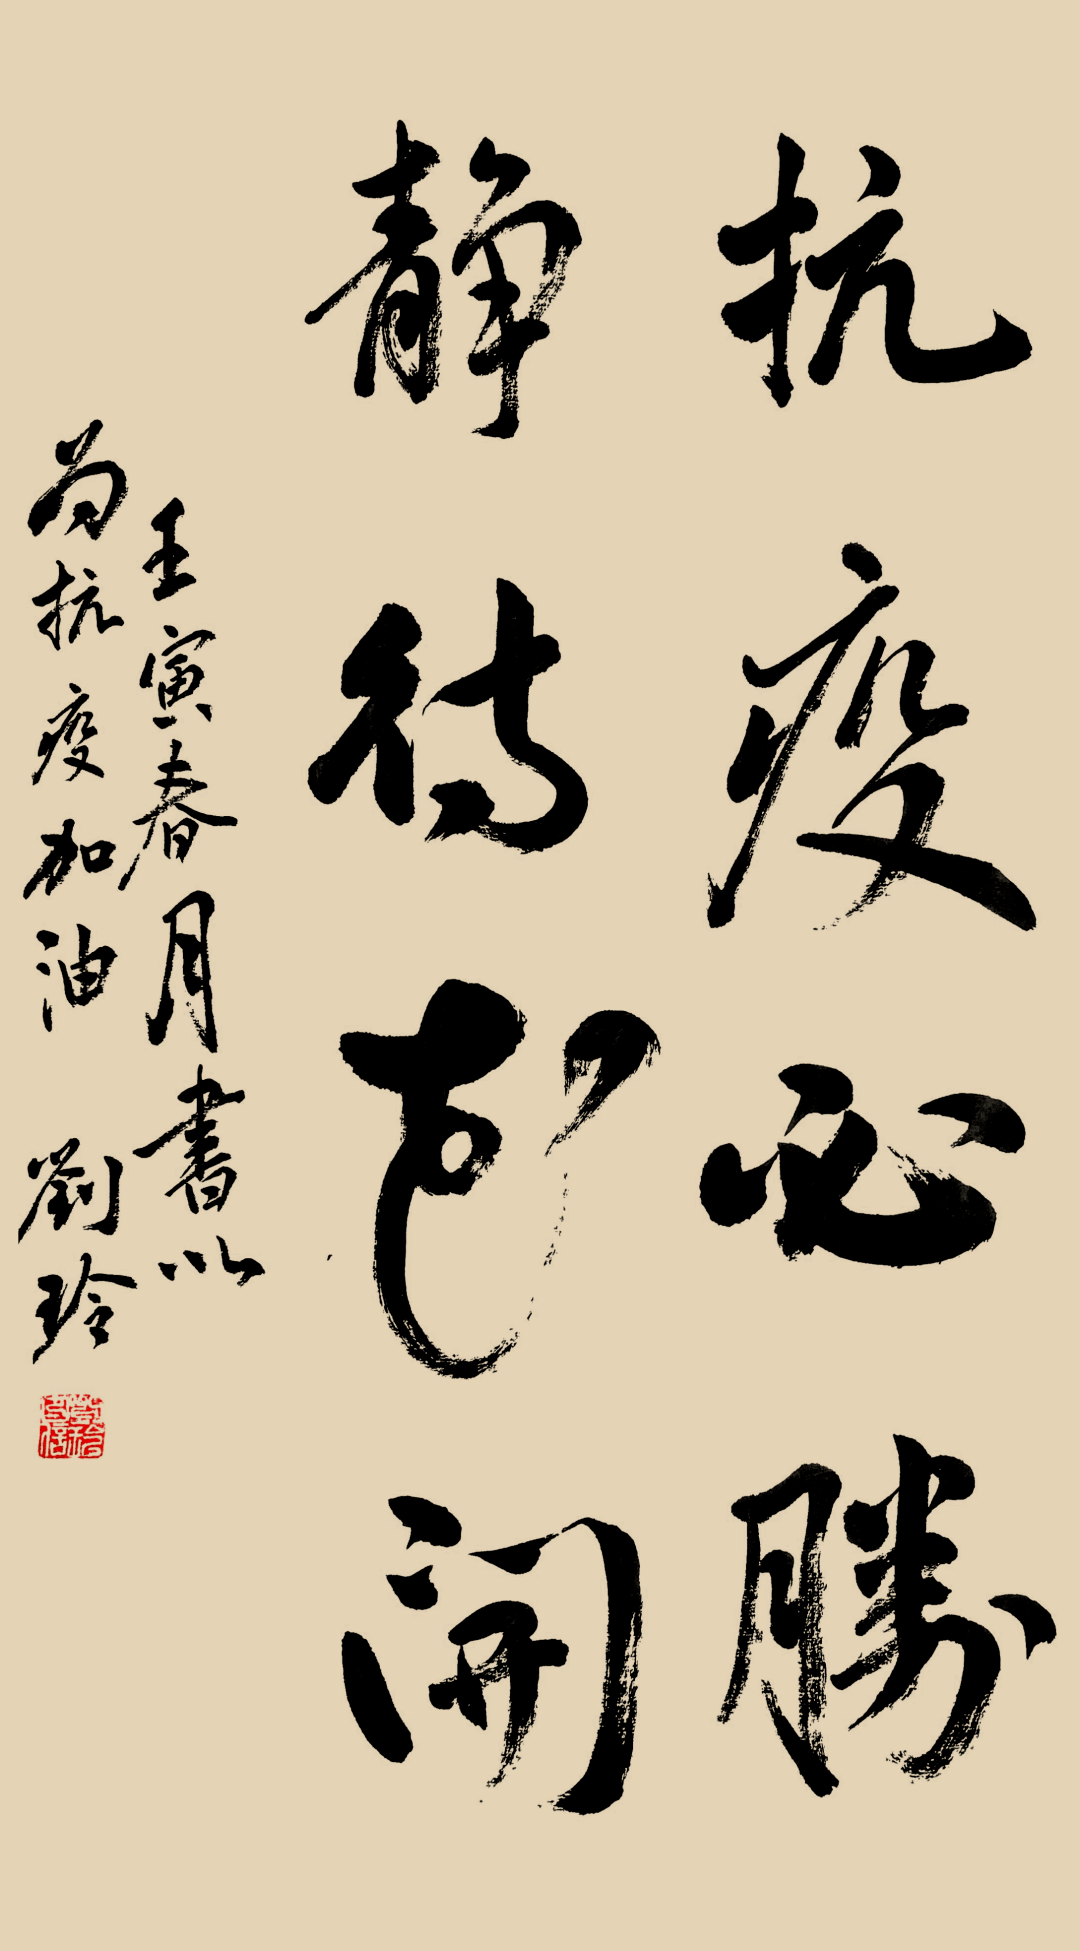 抗疫必勝
静待花開
壬寅春月書以
为抗疫加油 劉玲